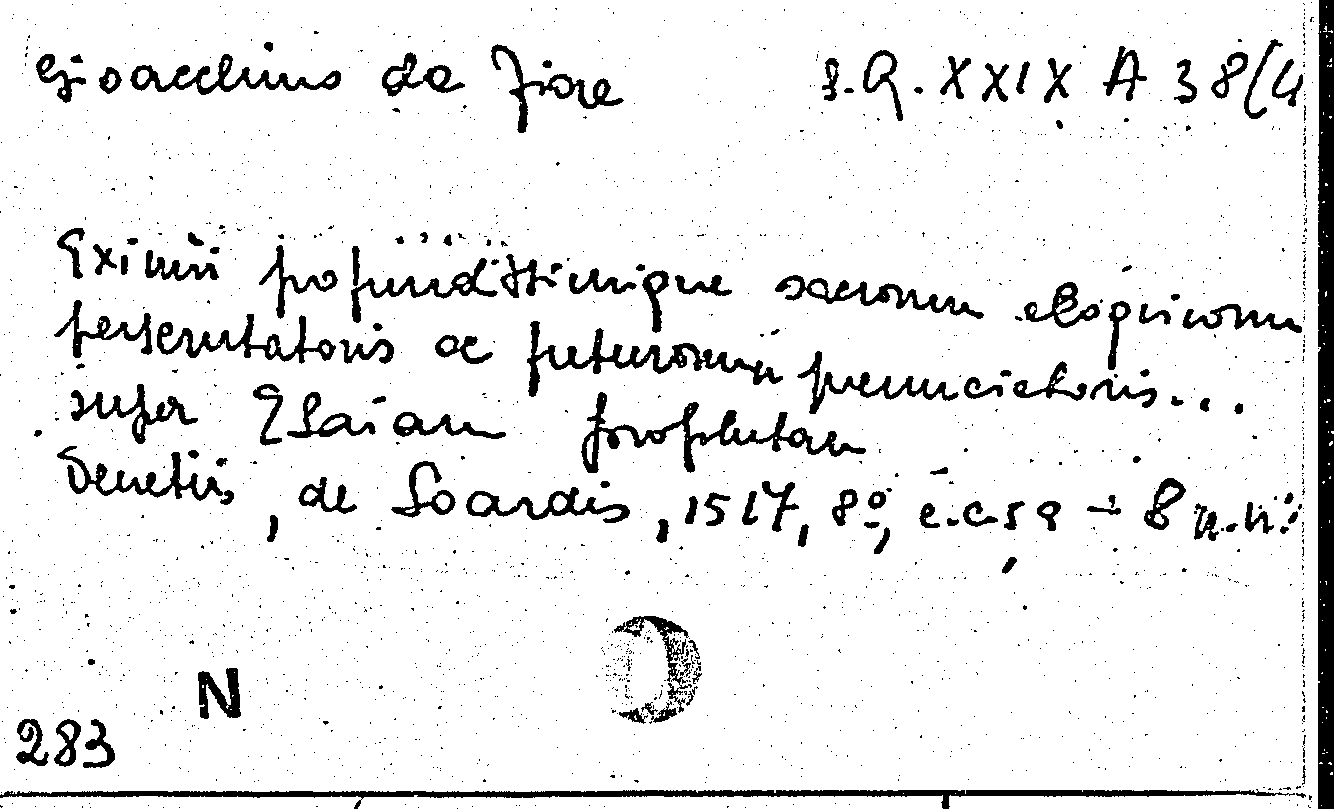 Gioacchino da Fiore S.Q. XXIX A 38(4
Eximii profundissimique sacrorum eloquiorum
perscrutatoris ac futurorum prenunciatoris...
super Esaiam prophetam
Venetiis, de Soardis, 1517, 8º, c.c. 59 + 8 n.n.
N
283